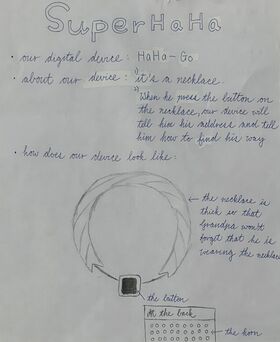 SuperHaHa
• our digital device: HaHa-Go
• about our device: 1) it's a necklace
2) When he press the button on
the necklace, our device will
tell him his address and tell
him how to find his way
• how does our device look like:
← the necklace is
thick so that
Grandpa won't
forget that he is
wearing the necklace
the button
At the back
← the horn